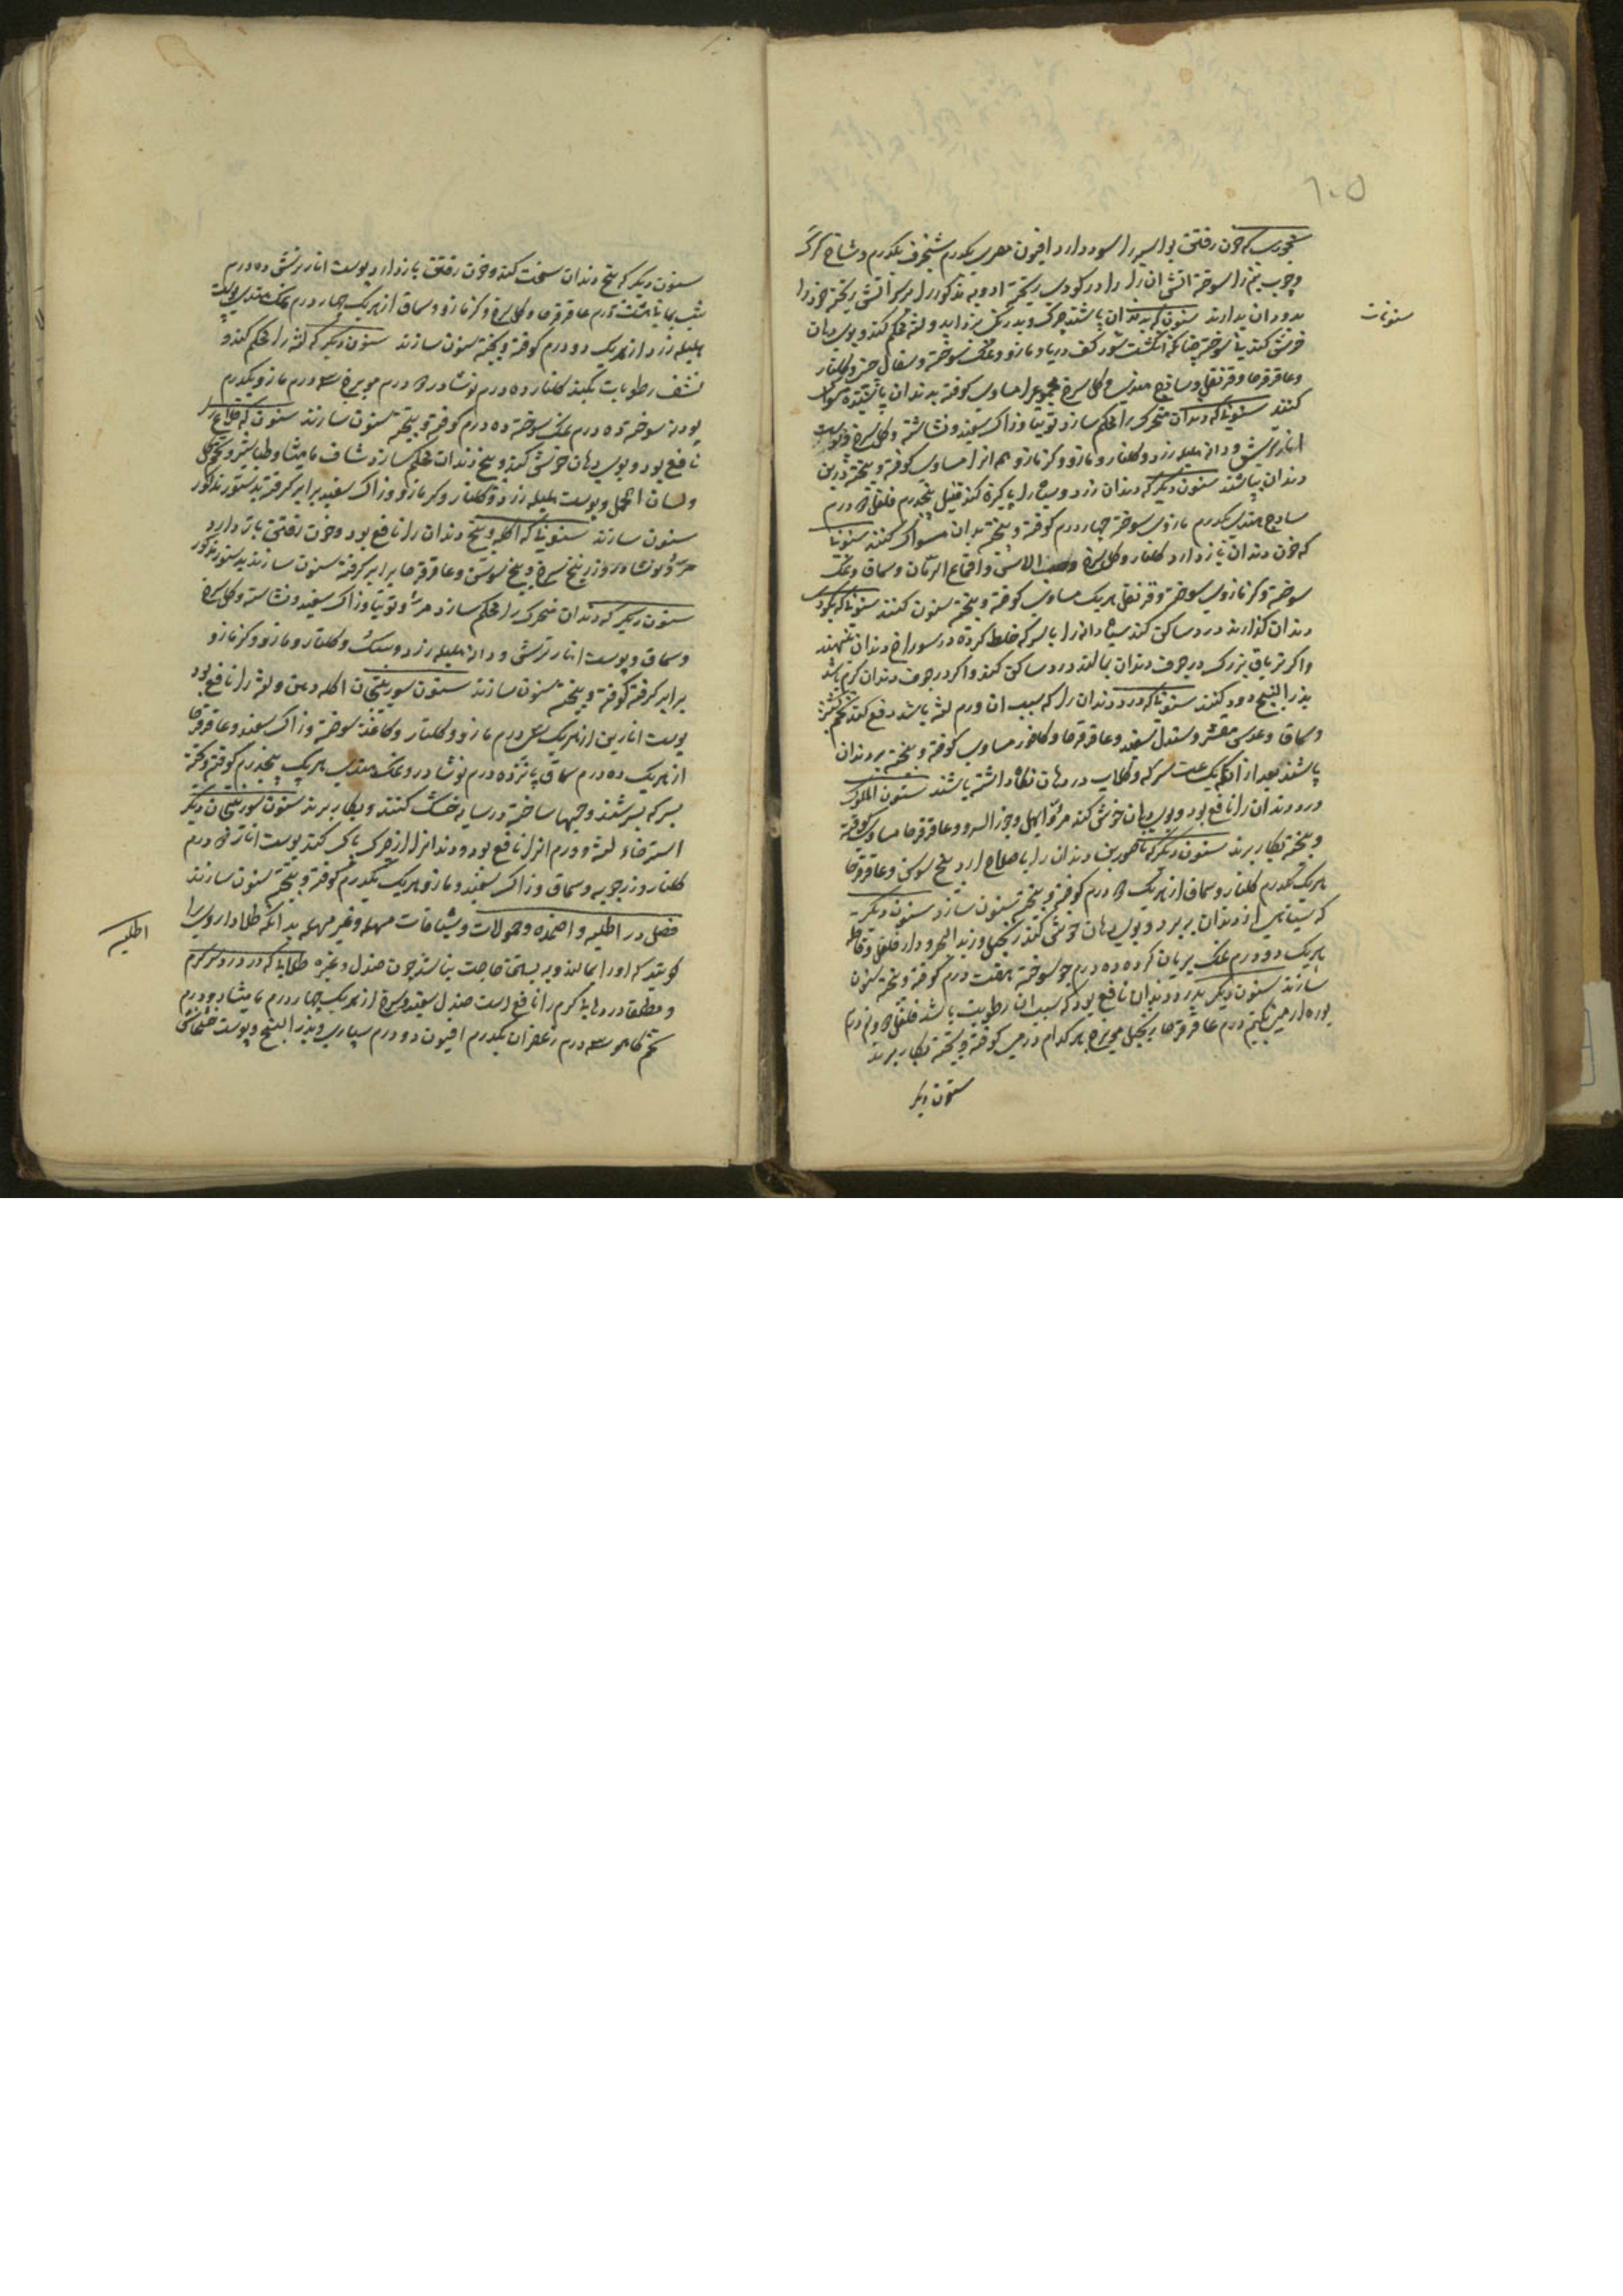 ۱۰۵
بخوری که خون رفتن بواسیر را سود دارد افیون مصری یکدرم شنجرف یکدرم و شاخ کرک
و چوب بید را سوخته آتش آن را در کودی ریخته ادویه مذکور را بر سر آتش ریخته خود را
بدود آن بدارند سنون که بدندان پاشند چرک و بد رنگی بزداید و لثه محکم کند و بوی دهان
سنونات
خوش کند سوخته چنانکه انگشت شود کف دریا و مازو و نمک سوخته و سفال چینی و گلنار
و عاقرقرحا و قرنفل و ساذج هندی و گل سرخ مجموع را مساوی کوفته بدندان پاشیده مسواک
کنند سنونی که دندان متحرک را محکم سازد توتیا و زاک سفید و نشاسته و گل سرخ و پوست
انار ترش و دانه هلیله زرد و گلنار و مازو و گزمازو هم انرا مساوی کوفته و بیخته در بن
دندان پاشند سنون دیگر که دندان زرد و سیاه را پاکیزه کند فلفل درم
ساذج هندی یکدرم مازوی سوخته چهار درم کوفته و بیخته بدان مسواک کنند سنونی
که خون دندان باز دارد گلنار و گل سرخ و حب الاس و اقماع الرمان و سماق و نمک
سوخته و گزمازوی سوخته و قرنفل هریک مساوی کوفته و بیخته سنون کنند سنونی که چون بر
دندان گذارند درد ساکن کند سیاه دانه را با سرکه خلط کرده در سوراخ دندان نهند
و اگر تریاق بزرگ در جوف دندان بمالند درد ساکن کند و اگر در جوف دندان کرم باشد
بذر البنج دود کنند سنونی که درد دندان را که بسبب ان ورم لثه باشد دفع کند تخم گشنیز
و سماق و عدس مقشر و صندل سفید و عاقرقرحا و کافور مساوی کوفته و بیخته بر دندان
پاشند بعد از آنکه یک ساعت سرکه و گلاب در دهان نگاه داشته باشند سنون الملوک
درد دندان را نافع بود و بوی دهان خوش کند مر و ابهل و جوز السرو و عاقرقرحا مساوی کوفته
و بیخته بکار برند سنون دیگر که ناصور بن دندان را باصلاح آرد بیخ سوسن و عاقرقرحا
هریک یکدرم گلنار و سماق از هریک درم کوفته و بیخته سنون سازند سنون دیگر
که سیاهی از دندان ببرد و بوی دهان خوش کند زنجبیل و زبد البحر و دارفلفل و قاقله
هریک دو درم نمک بریان کرده ده درم جو سوخته هفت درم کوفته و بیخته سنون
سازند سنون دیگر بدرد دندان نافع بود که سبب ان رطوبت باشد فلفل
بوره ارمنی نیم درم عاقرقرحا زنجبیل مویزج هر کدام درمی کوفته و بیخته بکار برند
سنون دیگر
سنون دیگر که بیخ دندان سخت کند و خون رفتن باز دارد پوست انار ترش ده درم
شب یمانی هشت درم عاقرقرحا و گل سرخ و گزمازو و سماق از هریک چهار درم نمک هندی و پوست
هلیله زرد از هریک دو درم کوفته و بیخته سنون سازند سنون دیگر که لثه را محکم کند و
نشف رطوبات بکند گلنار ده درم نوشادر درم مویزج سه درم مازو یکدرم
پودنه سوخته ده درم نمک سوخته ده درم کوفته و بیخته سنون سازند سنون که قلاع را
نافع بود و بوی دهان خوش کند و بیخ دندان محکم سازد شیاف مامیثا و طباشیر و تخم گل
و لسان الحمل و پوست هلیله زرد و گلنار و گزمازو و زاک سفید برابر گرفته بدستور مذکور
سنون سازند سنونی که اکله و بیخ دندان را نافع بود و خون رفتن باز دارد
مر و نوشادر و زرنیخ سرخ و بیخ سوسن و عاقرقرحا برابر گرفته سنون سازند بدستور مذکور
سنون دیگر که دندان متحرک را محکم سازد مر و توتیا و زاک سفید و نشاسته و گل سرخ
و سماق و پوست انار ترش و دانه هلیله زرد و سک و گلنار و مازو و گزمازو
برابر گرفته کوفته و بیخته سنون سازند سنون سوریتجان اکله دهن و لثه را نافع بود
پوست انارین از هریک درم مازو و گلنار و کاغذ سوخته و زاک سفید و عاقرقرحا
از هریک ده درم سماق پانزده درم نوشادر و نمک هندی هریک پنجدرم کوفته و بیخته
بسرکه بسرشند و حبها ساخته در سایه خشک کنند و بکار برند سنون سوریتجان دیگر
استرخاء لثه و ورم انرا نافع بود و دندانرا از چرک پاک کند پوست انار درم
گلنار و زرچوبه و سماق و زاک سفید و مازو هریک یکدرم کوفته و بیخته سنون سازند
فصل در اطلیه و اضمده و حمولات و شیافات مسهله و غیر مسهله بدانکه طلا داروی را
اطلیه
گویند که او را بمالند و به بستن حاجت نباشد چون صندل و غیره طلائی که درد سر گرم
و مطلقا دردهای گرم را نافع است صندل سفید و سرخ از هریک چهار درم مامیثا دو درم
تخم کاهو سه درم زعفران یکدرم افیون دو درم سپاری و بذر البنج و پوست خشخاش